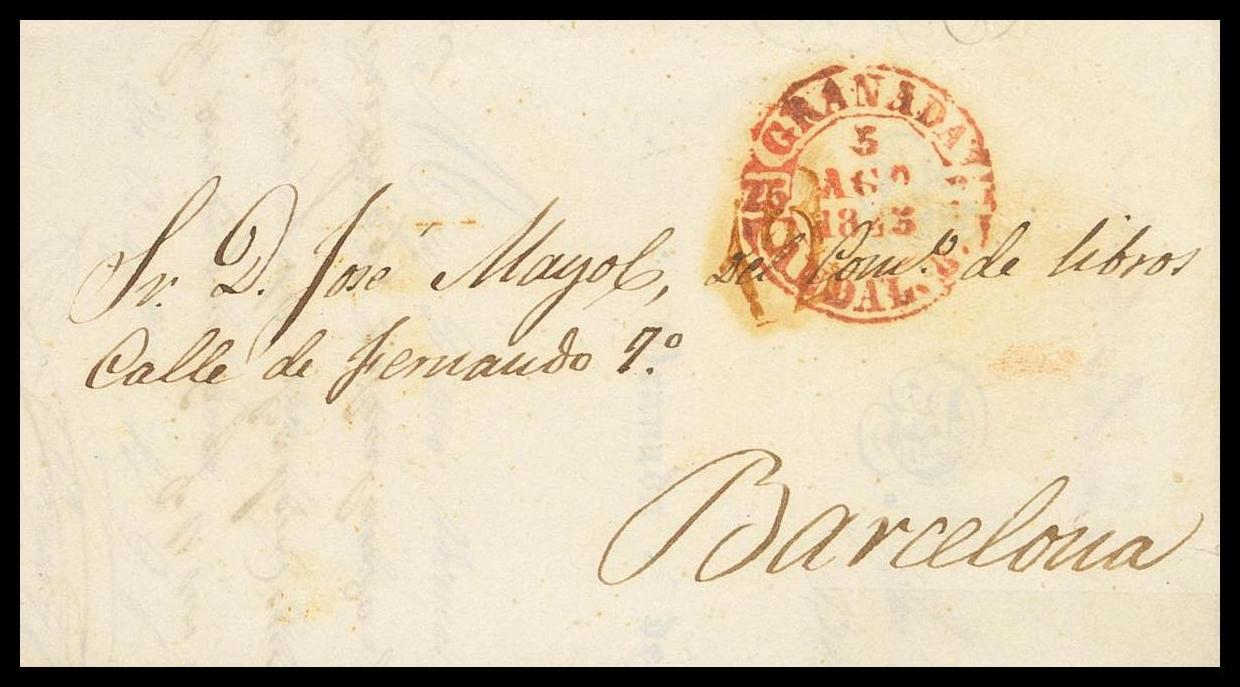 GRANADA
5
AGO
1845
25
ANDAL. B.
Sr. D. José Mayol, del Com.º de libros
Calle de Fernando 7.º
Barcelona